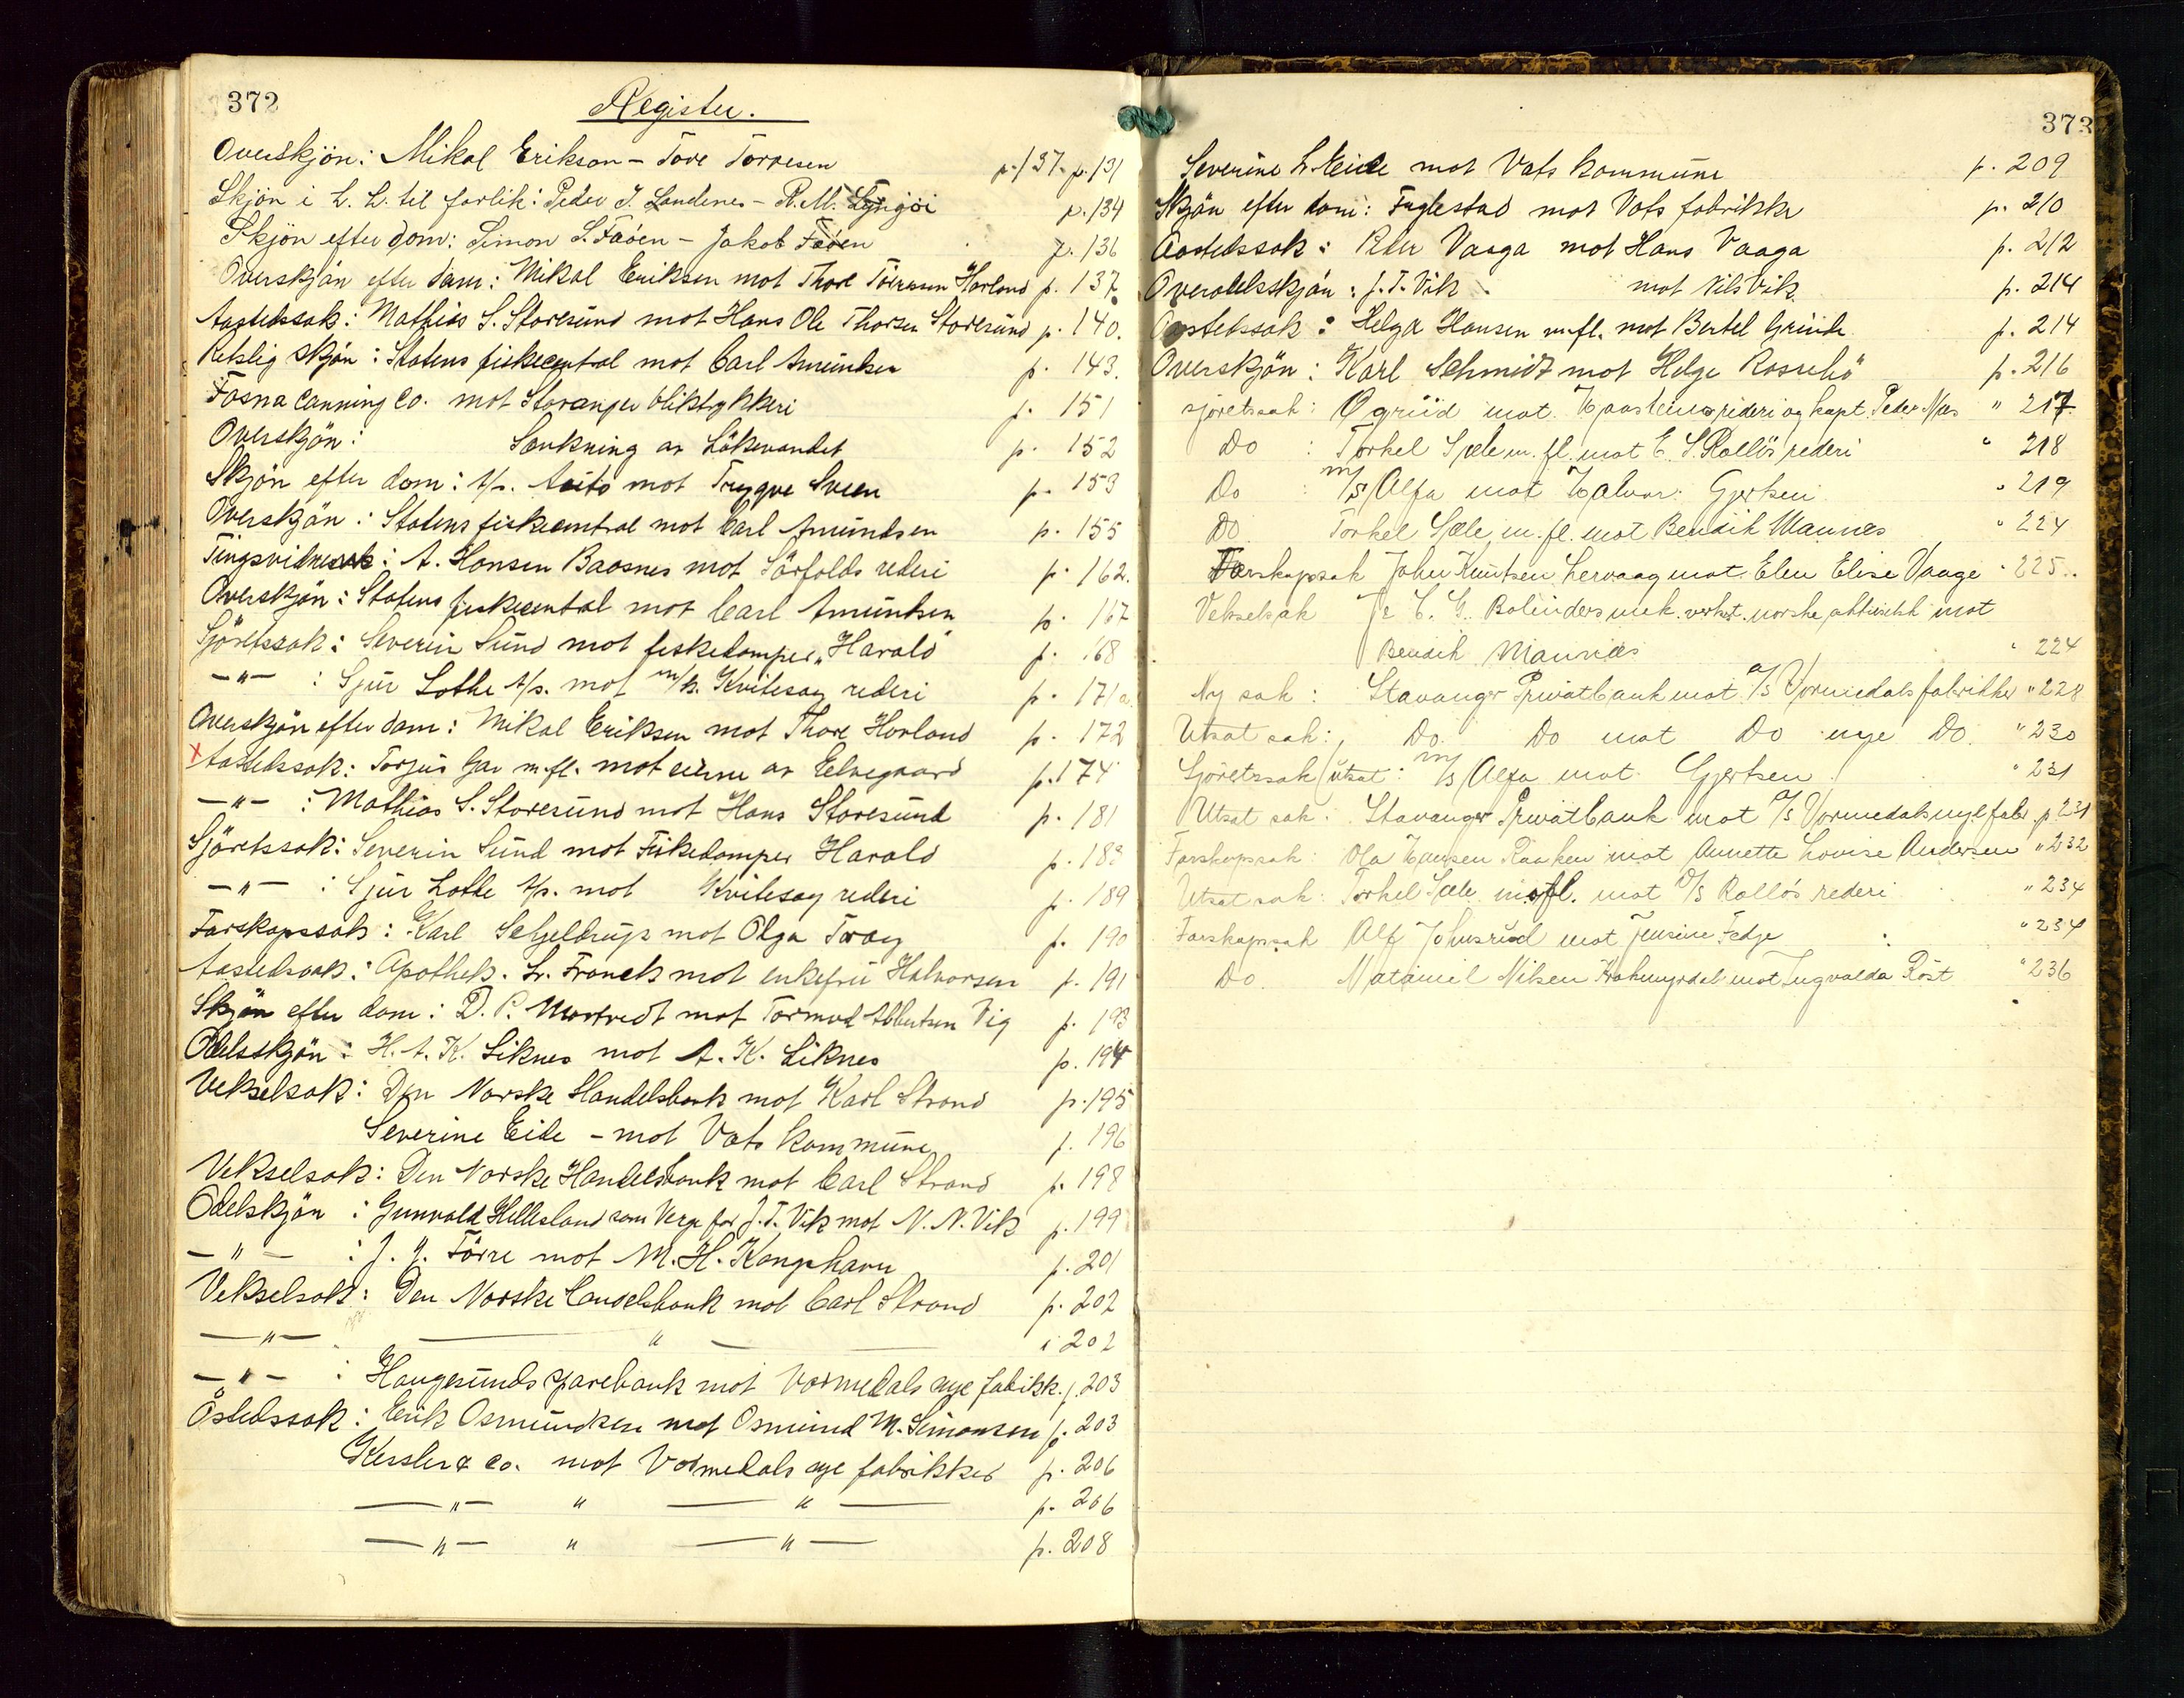 372
Register.
Overskjön: Mikal Erikson - Tore Torresen p. 137. p. 131
Skjön i L. L. til forlik: Peder J. Sandenes - R. M. Lyngöi p. 134
Skjön efter dom: Simon S. Faöen - Jakob Faöen p. 136
Overskjön efter dom: Mikal Eriksen mot Thore Törresen Havland p. 137
Aastedssak: Mathias S. Storesund mot Hans Ole Thorsen Storesund p. 140.
Retslig skjön: Statens fiskecentral mot Carl Amundsen p. 143.
Fosna Canning Co. mot Stavanger bliktrykkeri p. 151
Overskjön: Sænkning av Lökevandet p. 152
Skjön efter dom: A/s. mot Trygve Sveen p. 153
Overskjön: Statens fiskecentral mot Carl Amundsen p. 155
Tingsvidnesak: A. Hansen Baasnes mot Sörfolds rederi p. 162.
Overskjön: Statens fiskecentral mot Carl Amundsen p. 167
Sjöretssak: Severin Sund mot fiskedamper „Harald" p. 168
-"- : Sjur Lothe A/s. mot m/k. Kvitesøy rederi p. 171a
Overskjön efter dom: Mikal Eriksen mot Thore Havland p. 172
x Aastedssak: Torjus Gar m.fl. mot eierne av Eelvegaard p. 174
-"- : Mathias S. Storesund mot Hans Storesund p. 181
Sjöretssak: Severin Sund mot Fiskedamper Harald p. 183
-"- : Sjur Lothe A/s. mot Kvitesøy rederi p. 189
Farskapssak: Karl Seljeldrup mot Olga Tvag p. 190
Aastedssak: Apothek. Lr. Franck mot enkefru Halvorsen p. 191
Skjön efter dom: D. P. Mortvedt mot Tormod Abbutsen Vig p. 193
Odelsskjön: H. A. K. Liknes mot A. K. Liknes p. 194
Vekselsak: Den Norske Handelsbank mot Karl Strand p. 195
Severine Eide - mot Vats kommune p. 196
Vekselsak: Den Norske Handelsbank mot Carl Strand p. 198
Odelskjön: Gunvald Hellesland som Verge for J. T. Vik mot N. N. Vik p. 199
-"- : J. J. Förre mot M. H. Kongshavn p. 201
Vekselsak: Den Norske Handelsbank mot Carl Strand p. 202
-"- " - 202
-"- : Haugesunds Sparebank mot Vormedals nye fabrikk. p. 203
Åstedssak: Erik Osmundsen mot Osmund M. Simonsen p. 203
Kessler & Co. mot Vormedals nye fabrikker p. 206
-"- " -"- p. 206
-"- " -"- p. 208
373
Severine L. Eide mot Vats kommune p. 209
Skjön efter dom: Fuglestad mot Vats fabrikker p. 210
Aastedssak: Peder Vaaga mot Hans Vaaga p. 212
Overodelsskjön: J. T. Vik mot Nils Vik. p. 214
Aastedssak: Helga Hansen m.fl. mot Bertel Grinde p. 214
Overskjön: Karl Schmidt mot Helge Rossebö p. 216
sjøretssak: Øgriid mot Haasteins rederi og kapt. Peder Næs " 217
Do : Torkel Sæle m. fl. mot E. S. Rolløs rederi " 218
Do : m/s Alfa mot Halvor Gjertsen " 219
Do. Torkel Sæle m. fl. mot Bendik Mannes " 224
Farskapssak John Knutsen Lervaag mot Elen Elise Vaage " 225..
Vekselsak J & C. G. Bolinders mek. verkst. norske aktieselsk mot
Bendik Mannes " 224
Ny sak: Stavanger Privatbank mot A/s Vormedals fabrikker " 228
Utsat sak: Do. Do mot Do nye Do. " 230
Sjøretssak (utsat: m/s Alfa mot Gjertsen. " 231
Utsat sak: Stavanger Privatbank mot A/s Vormedals nye fabr. p 231
Farskapssak: Ola Hansen Raaken mot Annette Lovise Andersen " 232
Utsat sak: Torkel Sæle m. fl. mot A/s Rolløs rederi " 234
Farskapssak Alf Johnsrød mot Jensine Fedje " 234
Do. Nataniel Nilsen Krakmyrdal mot Ingvalda Röst " 236